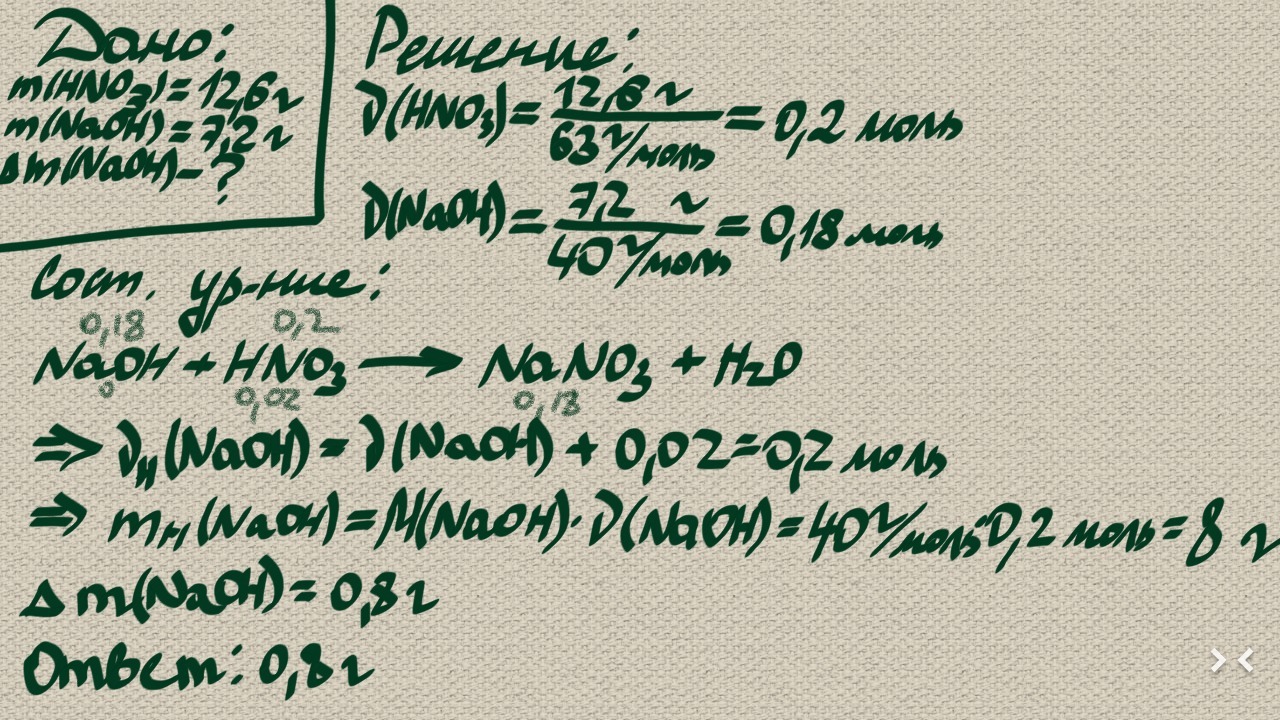 Дано:
m(HNO₃) = 12,6 г
m(NaOH) = 7,2 г
Δm(NaOH) - ?
Решение:
ν(HNO₃) = 12,6 г / 63 г/моль = 0,2 моль
ν(NaOH) = 7,2 г / 40 г/моль = 0,18 моль
Сост. ур-ние:
0,18 0,2
NaOH + HNO₃ → NaNO₃ + H₂O
0 0,02 0,18
⇒ νн(NaOH) = ν(NaOH) + 0,02 = 0,2 моль
⇒ mн(NaOH) = M(NaOH) · ν(NaOH) = 40 г/моль · 0,2 моль = 8 г
Δm(NaOH) = 0,8 г
Ответ: 0,8 г